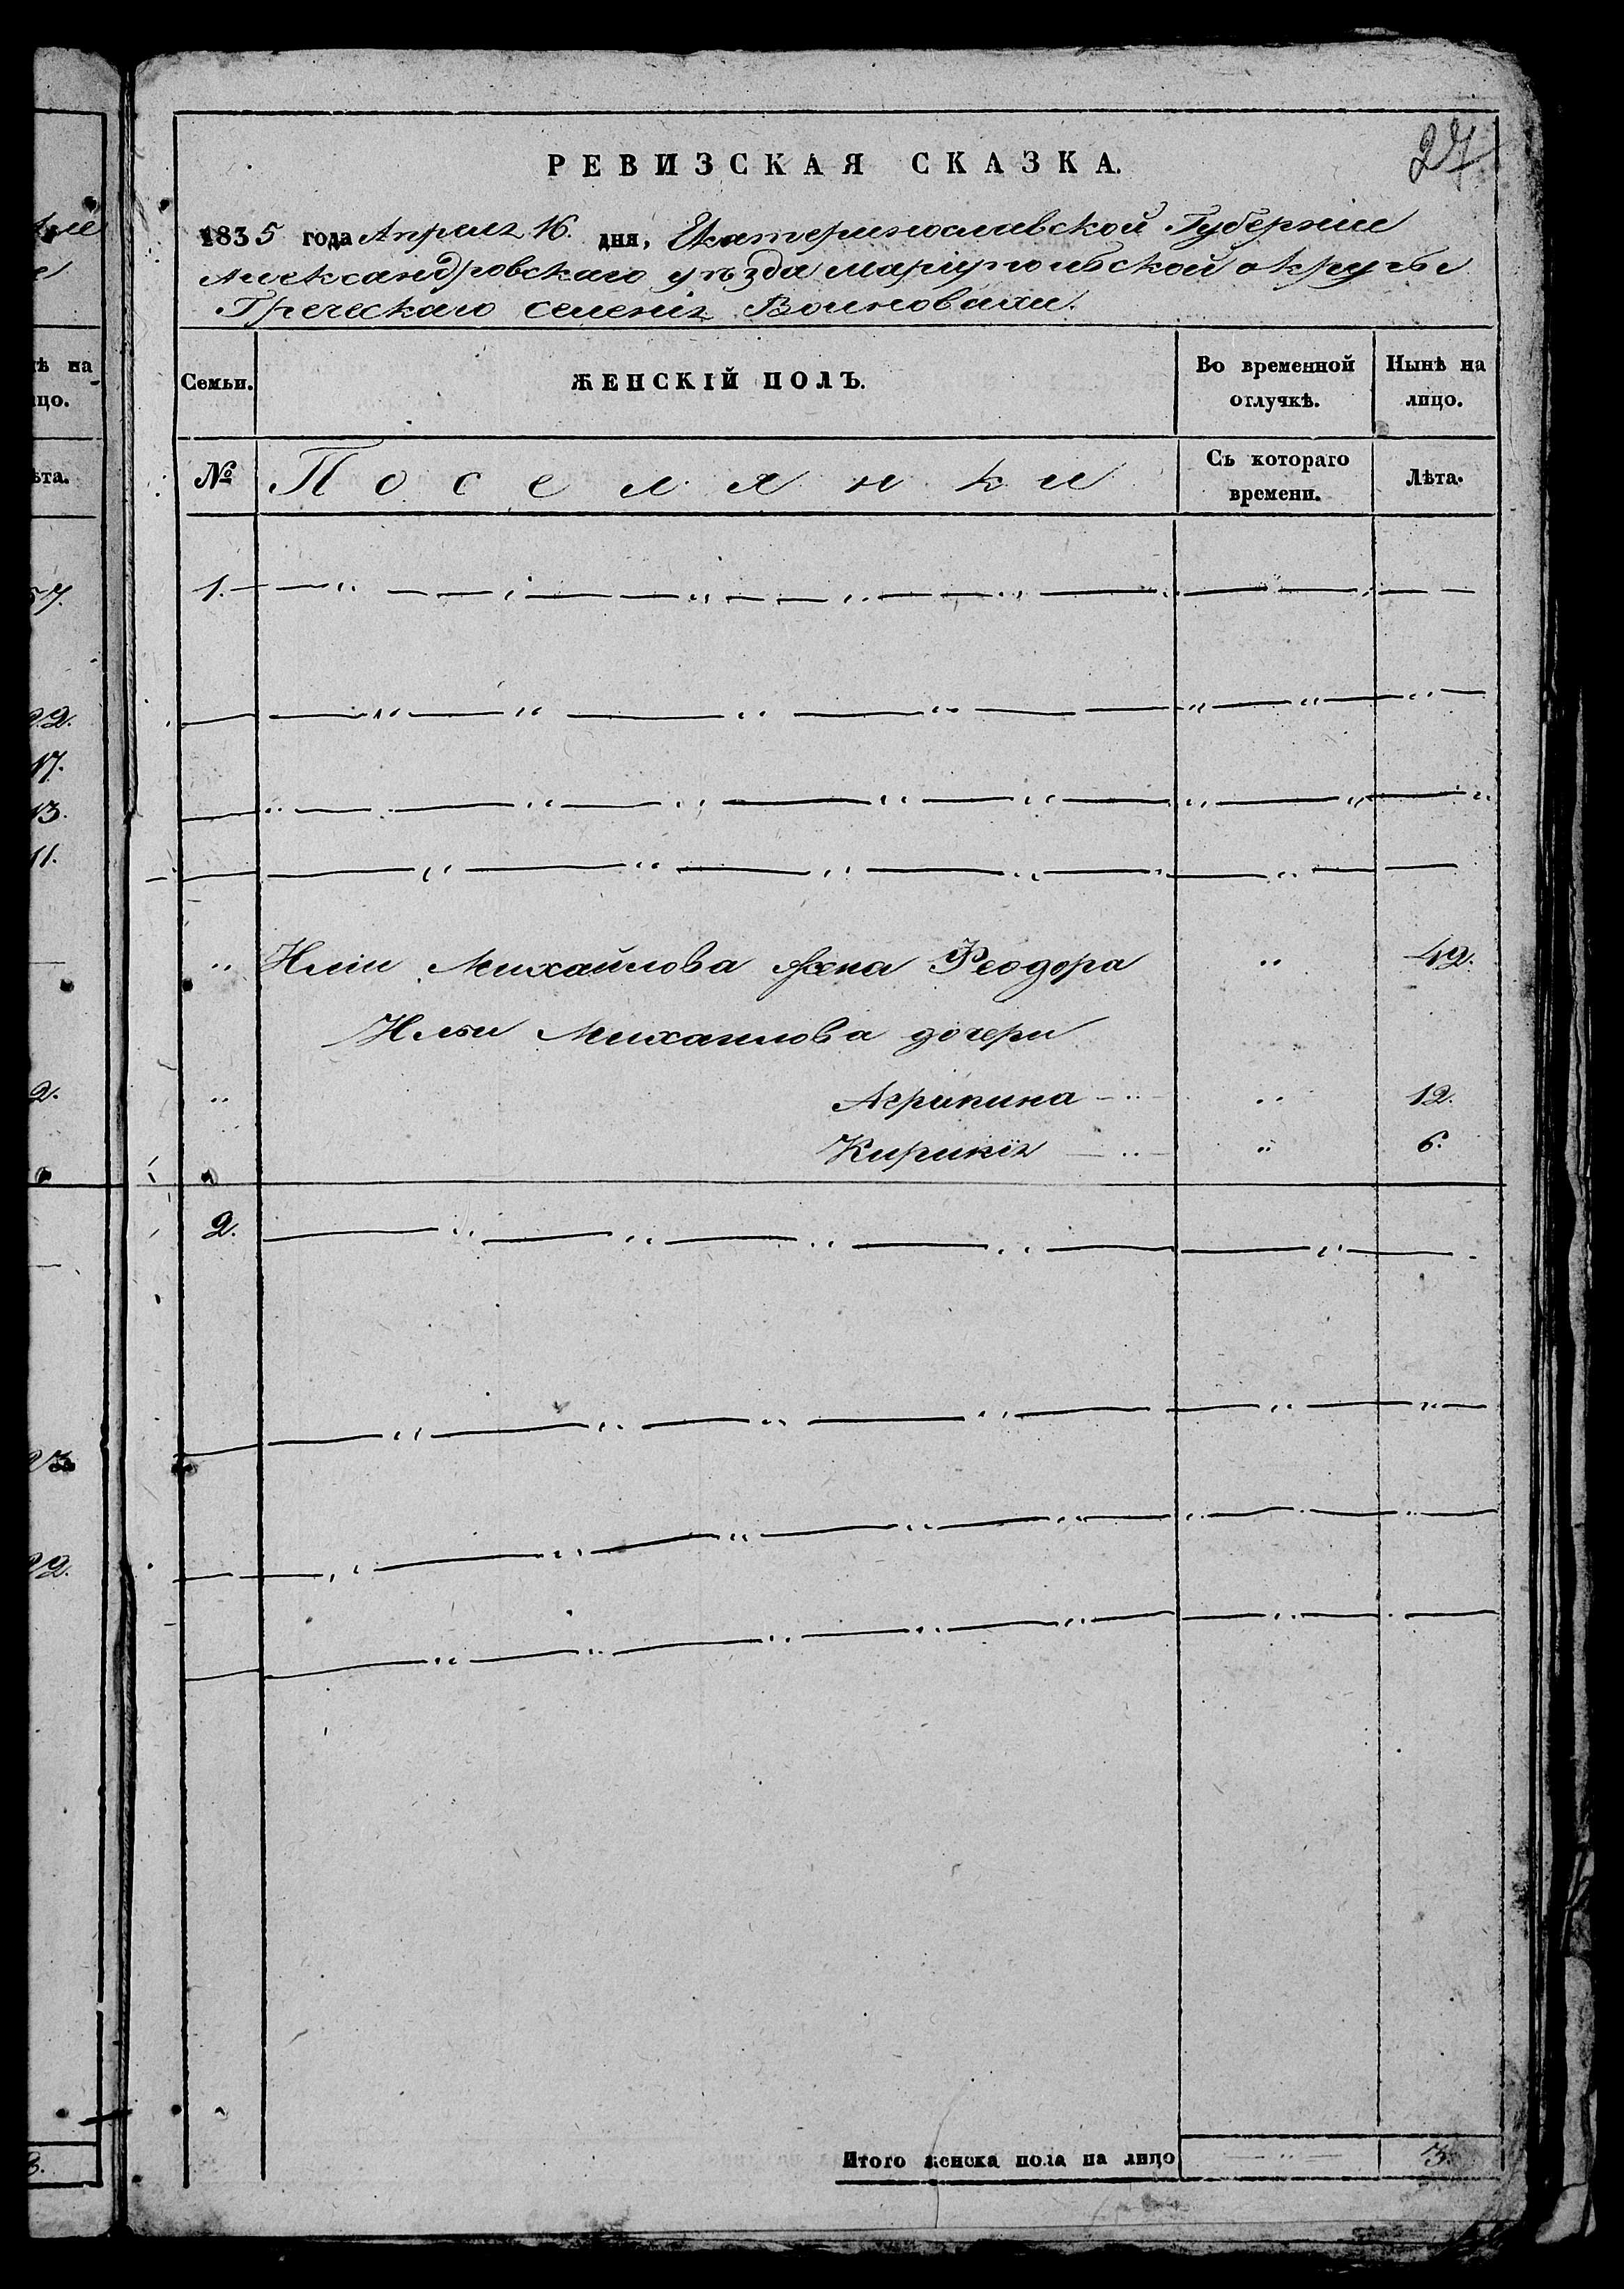 27
РЕВИЗСКАЯ СКАЗКА.
1835 года Апреля 16. дня, Екатеринославской Губерніи
Александровскаго уѣзда Маріупольской округи
Греческаго селенія
ѣ на
цо.
Семьи.
ЖЕНСКІЙ ПОЛЪ.
Во временной
отлучкѣ.
Нынѣ на
лицо.
ѣта.
№
Поселянки
Съ котораго
времени.
Лѣта.
1.
57.
22.
17.
13.
11.
Иліи Михайлова жена Феодора 42.
Ильи Михаилова дочери
2.
Агрипина 12.
Кирикія 6.
2.
23
22.
Итого женска пола на лицо 3.
3.